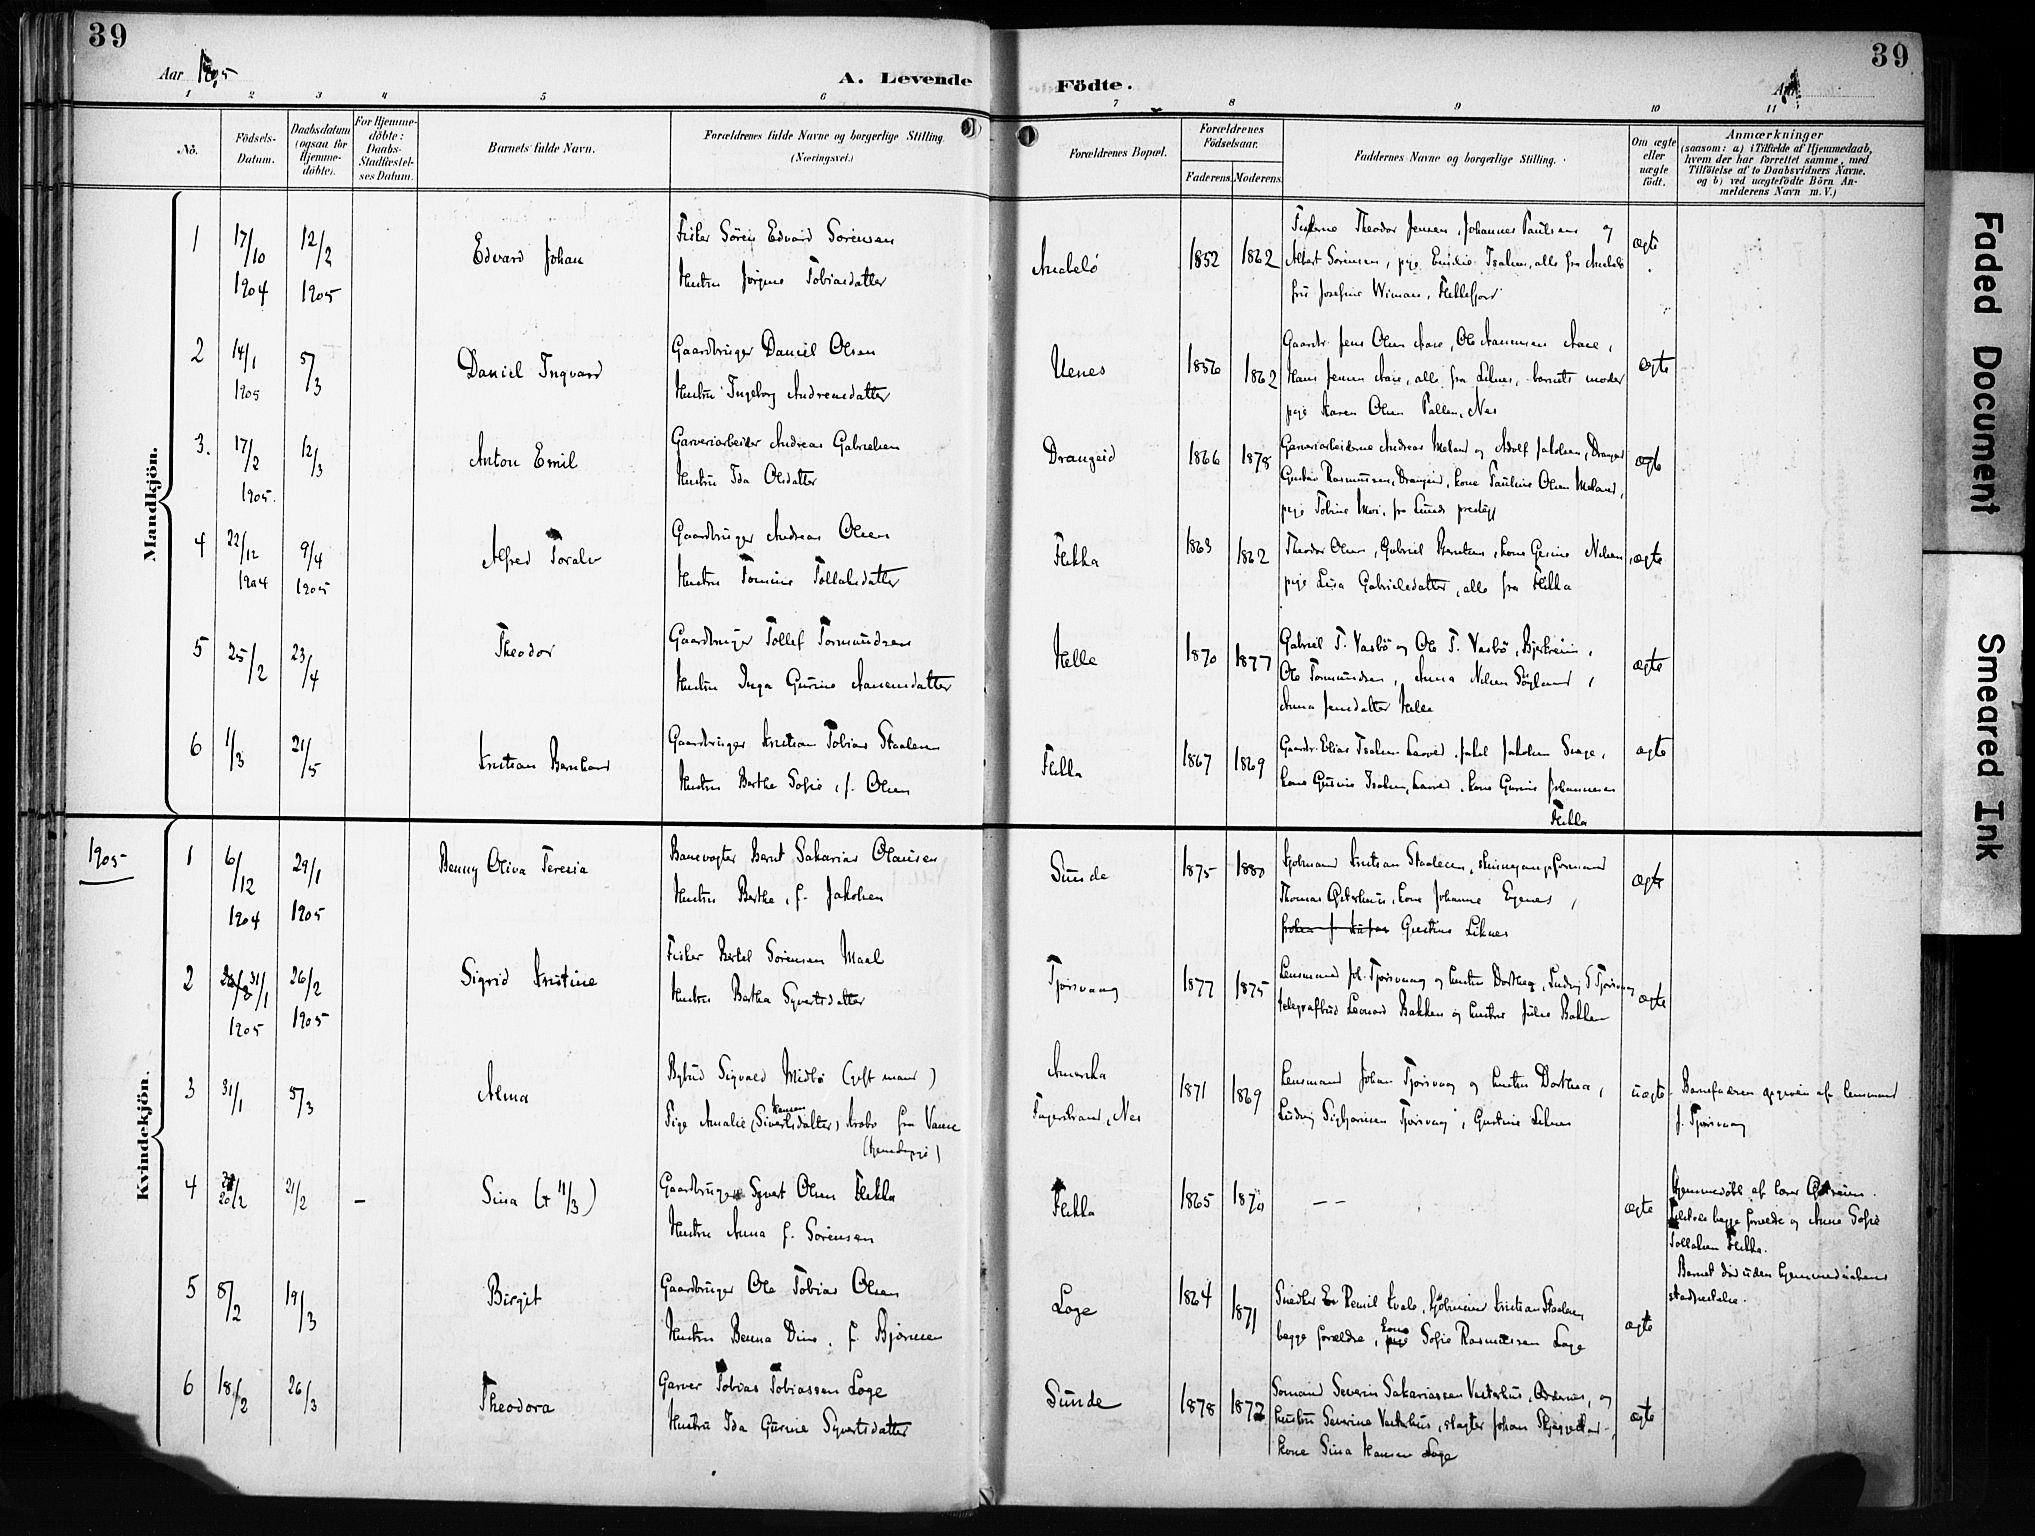 39
39
Aar 1905
A. Levende Födte.
1 2 3 4 5 6 7 8 9 10 11
No.
Födsels-Datum.
Daabsdatum (ogsaa for Hjemme-döbte).
For Hjemme-döbte: Daabs-Stadfæstel-ses Datum.
Barnets fulde Navn.
Forældrenes fulde Navne og borgerlige Stilling. (Næringsvei.)
Forældrenes Bopæl.
Forældrenes Födselsaar.
Faderens. Moderens.
Faddernes Navne og borgerlige Stilling.
Om ægte eller uægte födt.
Anmærkninger
(saasom: a) i Tilfælde af Hjemmedaab, hvem der har forrettet samme, med Tilföielse af to Daabsvidners Navne. og b) ved uægtefödte Börn An-melderens Navn m. V.)
Mandkjön.
1 17/10 1904 12/2 1905 Edvard Johan
Fisker Sören Edvard Sorensen
Hustru Jörgine Tobiasdatter
Anabelö 1852 1862
Fiskerne Theodor Jensen, Johannes Paulsen og
Albert Sorensen, pige Emilie Isaksen, alle fra Anabelö
fru Josefine Wiman, Flekkefjord
ægte
2 14/1 1905 5/3 Daniel Ingvard
Gaardbruger Daniel Olsen
Hustru Ingeborg Andreasdatter
Uenes 1856 1862
Gaardbr. Jens Olsen Aase, Ole Aanensen Aase,
Hans Jensen Aase, alle fra Liknes, barnets moder
pige Karen Olsen Pallen, Nes
ægte
3. 17/2 1905. 12/3 Anton Emil
Garveriarbeider Andreas Gabrielsen
Hustru Ida Olsdatter
Drangeid 1866 1878
Garveriarbeiderne Andreas Meland og Adolf Jakobsen, Drangeid
Gustav Rasmussen, Drangeid, kone Pauline Olsen Meland,
pige Tobine Moi, fra Lunds prestegj
ægte
4 22/12 1904 9/4 1905 Alfred Toralv
Gaardbruger Andreas Olsen
Hustru Tomine Tollaksdatter
Flikka 1863 1862
Theodor Olsen, Gabriel Berntsen, kone Gesine Nilsen,
pige Lisa Gabrielsdatter, alle fra Flikka
ægte
5 25/2 23/4 Theodor
Gaardbruger Tollef Tormundsen
Hustru Inga Gurine Aanensdatter
Helle 1870 1877
Gabriel T. Vasbö og Ole T. Vasbö, Bjerkreim,
Ole Tormundsen, Anna Nilsen Söyland,
Anna Jensdatter Helle
ægte
6 1/3 21/5 Kristian Bernhard
Gaardbruger Kristian Tobias Staalesen
Hustru Berthe Sofie, f. Olsen
Flikka 1867 1869
Gaardbr. Elias Isaksen Laaved, Jakob Jakobsen Svege,
kone Gurine Isaksen, Laaved, kone Gurine Johannesen
Flikka
ægte
Kvindekjön.
1905
1 6/12 1904 29/1 1905 Benny Oliva Teresia
Banevogter Bernt Sakarias Olausen
Hustru Berthe, f. Jakobsen
Sunde 1875 1880
Kjobmand Kristian Staalesen, skinnegangsformand
Thomas Österhus, kone Johanne Egenes,
Gustine Liknes
ægte
2 31/1 1905 26/2 1905 Sigrid Kristine
Fisker Bertel Sorensen Maal
Hustru Bertha Syvertsdatter
Tjorsvaag 1877 1875
Lensmand Joh. Tjorsvaag og hustru Dorthea, Ludvig S Tjorsvaag
telegrafbud Leonard Bakken og hustru Julie Bakken
ægte
3 31/1 5/3 Alma
Bybud Sigvald Midbö (gift mand)
Pige Amalie (Sivertsdatter) Hansen Krabo fra Vanse
Amerika
Fagerstrand, Nes 1871 1869
Lensmand Johan Tjorsvaag og hustru Dorthea,
Ludvig Sigbjornsen Tjorsvaag, Gustine Liknes
uægte
Barnefaderen opgiven af lensmand
J. Tjorsvaag
4 20/2 21/2 – Sina (+ 11/3)
Gaardbruger Syvert Olsen Flikka
Hustru Anna f. Sorensen
Flikka 1865 1870
– –
ægte
Hjemmedöbt af lærer
begge forældre og Anne Sofie
Tollaksen Flikka.
Barnet död uden hjemmedaabens
stadfæstelse.
5 8/2 19/3 Birgit
Gaardbruger Ole Tobias Olsen
Hustru Benna Dine, f. Bjornsen
Loge 1864 1871
Snedker Remil Kvalo, Kjöbmand Kristian Staalesen,
begge forældre, kone Sofie Rasmussen Loge
ægte
6 18/2 26/3 Theodora
Garver Tobias Tobiassen Loge
Hustru Ida Gurine Syvertsdatter
Sunde 1878 1872
Somand Severin Sakariassen Vesterhus, Oddernes, og
hustru Severine Vesterhus, slagter Johan
kone Sina Hansen Loge
ægte
Faded Document
Smeared Ink